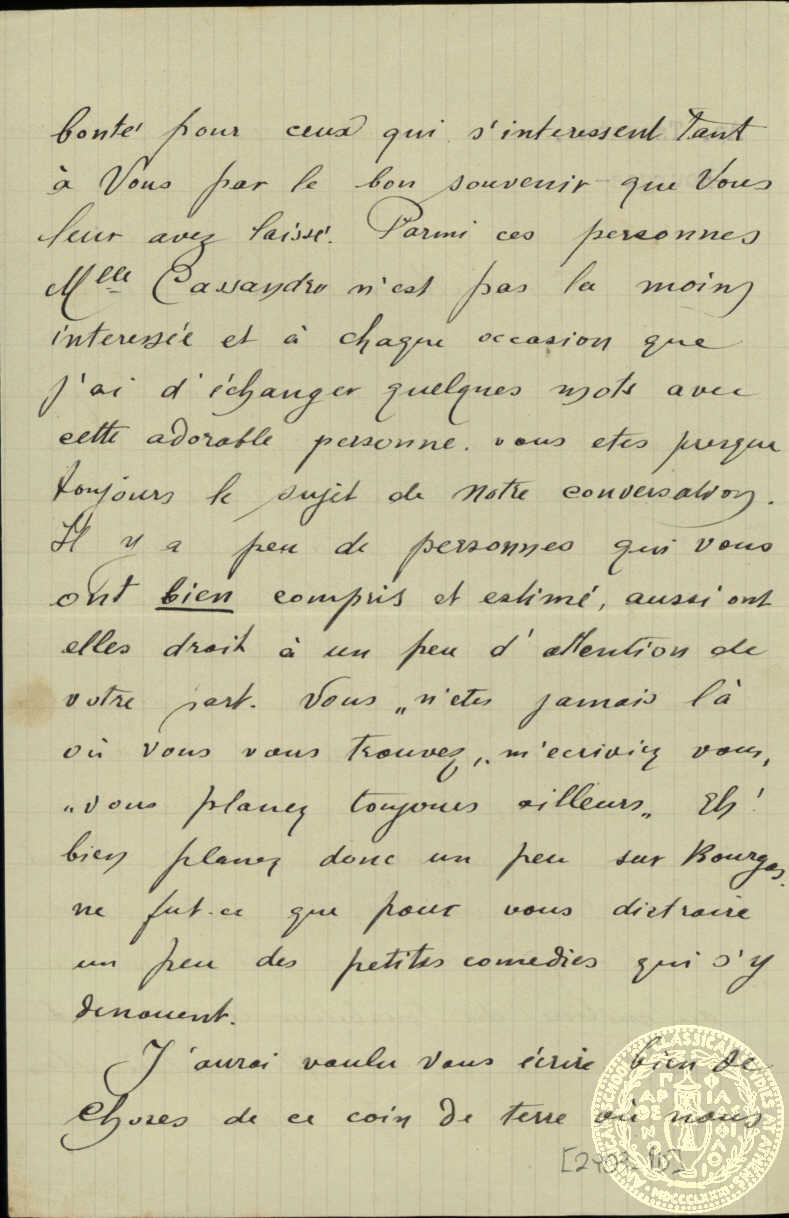 bonté pour ceux qui s'interessent tant
à Vous par le bon souvenir que Vous
leur avez laissé. Parmi ces personnes
Mlle Cassandre n'est pas la moins
interessée et à chaque occasion que
j'ai d'échanger quelques mots avec
cette adorable personne. vous etes presque
toujours le sujet de notre conversation.
Il y a peu de personnes qui vous
ont bien compris et estimé, aussi ont
elles droit à un peu d'attention de
votre part. Vous „n'etes jamais là
où vous vous trouvez„ m'ecriviez vous,
„vous planez toujours ailleurs„ Eh!
bien planez donc un peu sur Bourgas.
ne fut-ce que pour vous distraire
un peu des petites comedies qui s'y
denouent.
J'aurai voulu vous écrire bien de
choses de ce coin de terre où nous
AMERICAN SCHOOL OF CLASSICAL STUDIES AT ATHENS
MDCCCLXXXI